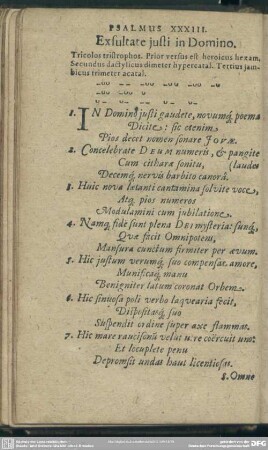 PSALMUS XXXIII.
Exsultate justi in Domino.
Tricolos tristrophos. Prior versus est heroicus hexam.
Secundus dactylicus dimeter hypercatal. Tertius jam-
bicus trimeter acatal.
1. IN Domino justi gaudete, novumq́ poema
Dicite: sic etenim
Pios decet nomen sonare JOVÆ.
2. Concelebrate DEUM numeris, & pangite
(laudes
Cum cithara sonitu,
Decemq́ nervis barbito canorâ.
3. Huic nova lætanti cantamina solvite voce,
Atq́ pios numeros
Modulamini cum jubilatione.
4. Namq́ fide sunt plena DEI mysteria: sunt,
Quæ facit Omnipotens,
Mansura cunctum firmiter per ævum.
5. Hic justum verumq́ suo compensat amore,
Munificaq́ manu
Benigniter latum coronat Orbem.
6. Hic sinuosa poli verbo laquearia fecit,
Dispositasq́ suo
Suspendit ordine super axe flammas.
7. Hic mare raucisonum velut utre coërcuit um:
Et locuplete penu
Depromsit undas haut licentiosas.
8. Omne